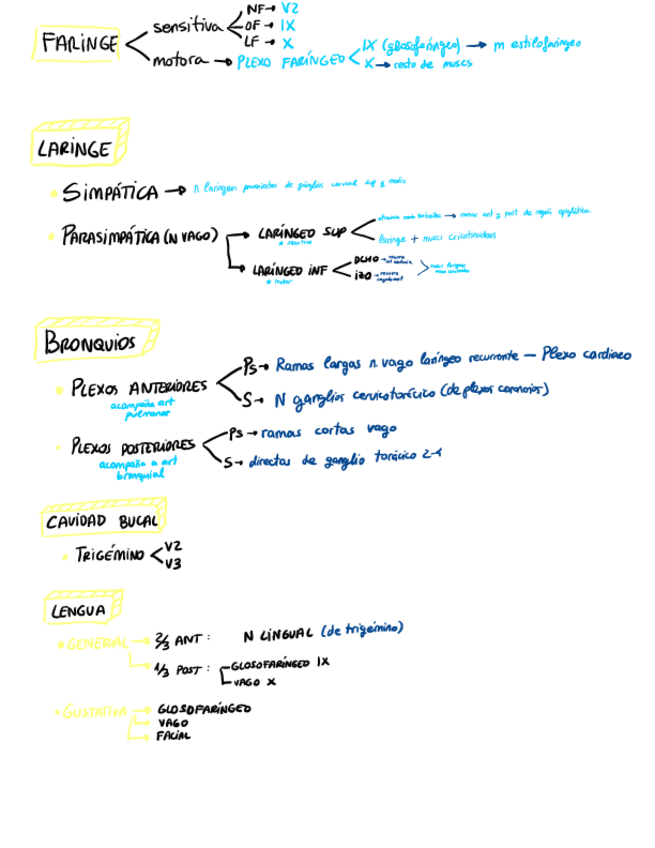 FARINGE
sensitiva
NF → V2
OF → IX
LF → X
motora → PLEXO FARÍNGEO
IX (glosofaríngeo) → m estilofaríngeo
X → resto de muscs
LARINGE
SIMPÁTICA → n laríngeos provenientes de ganglios cervical sup y medio
PARASIMPÁTICA (N VAGO)
LARÍNGEO SUP
* sensitivo
→ ramas ant y post de región epiglótica
laringe + musc cricotiroideos
LARÍNGEO INF
* motor
DCHO →
IZQ →
BRONQUIOS
PLEXOS ANTERIORES
acompaña art
pulmonar
Ps → Ramas largas n vago laríngeo recurrente — Plexo cardiaco
S → N ganglios cervicotorácico (de plexos coronarios)
PLEXOS POSTERIORES
acompaña a art
bronquial
Ps → ramas cortas vago
S → directas de ganglio torácico 2-4
CAVIDAD BUCAL
TRIGÉMINO
V2
V3
LENGUA
GENERAL → 2/3 ANT : N LINGUAL (de trigémino)
1/3 POST :
GLOSOFARÍNGEO IX
VAGO X
GUSTATIVA → GLOSOFARÍNGEO
VAGO
FACIAL